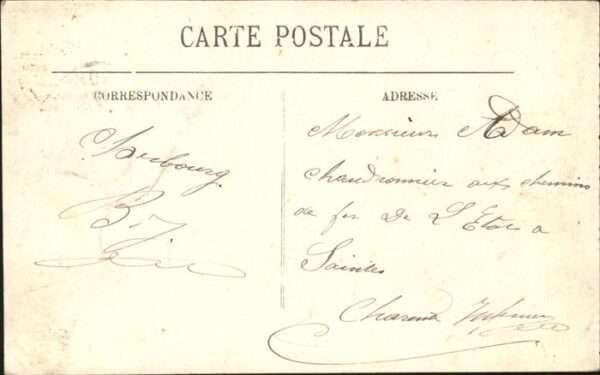 CARTE POSTALE
CORRESPONDANCE
ADRESSE
Cherbourg
Monsieur Adam
chaudronnier aux chemins
de fer De L'Etat a
Saintes
Charente Inferieure